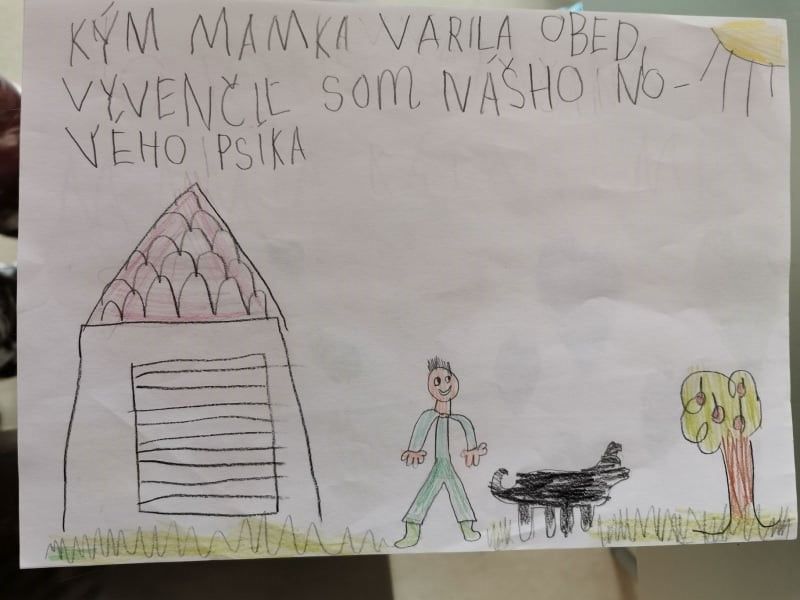 KÝM MAMKA VARILA OBED,
VYVENČIL SOM NÁŠHO NO-
VÉHO PSÍKA